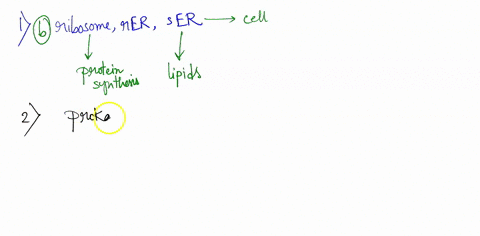 1) b ribosome, rER, sER → cell
protein lipids
synthesis
2) proka